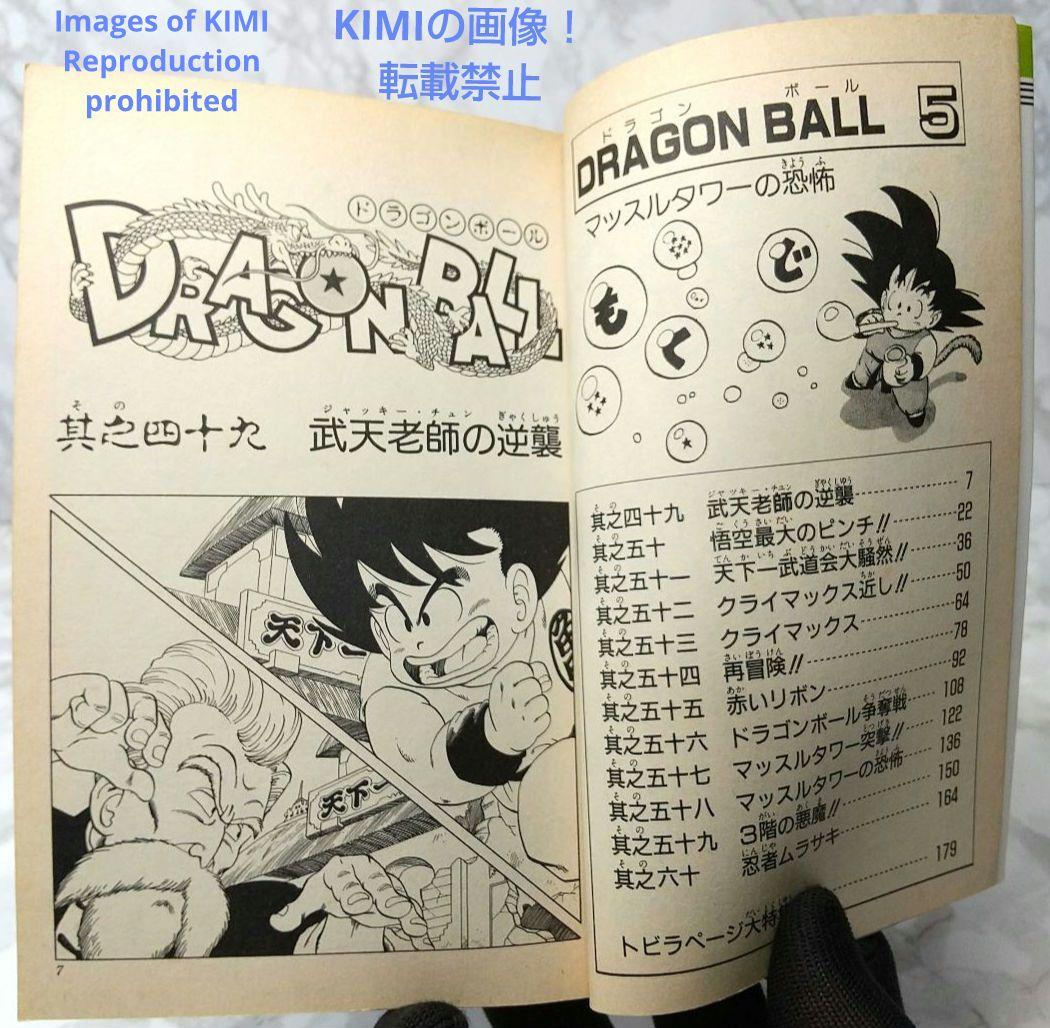 Images of KIMI
Reproduction
prohibited
KIMIの画像！
転載禁止
ドラゴン ボール
DRAGON BALL 5
きょう ふ
マッスルタワーの恐怖
もくじ
其之四十九 武天老師の逆襲 7
其之五十 悟空最大のピンチ!! 22
其之五十一 天下一武道会大騒然!! 36
其之五十二 クライマックス近し!! 50
其之五十三 クライマックス 64
其之五十四 再冒険!! 78
其之五十五 赤いリボン 92
其之五十六 ドラゴンボール争奪戦 108
其之五十七 マッスルタワー突撃!! 122
其之五十八 マッスルタワーの恐怖 136
其之五十九 3階の悪魔!! 150
其之六十 忍者ムラサキ 164
トビラページ大特 179
ドラゴンボール
DRAGON BALL
そ の ジャッキー・チュン ぎゃくしゅう
其之四十九 武天老師の逆襲
天下一
天下一
7